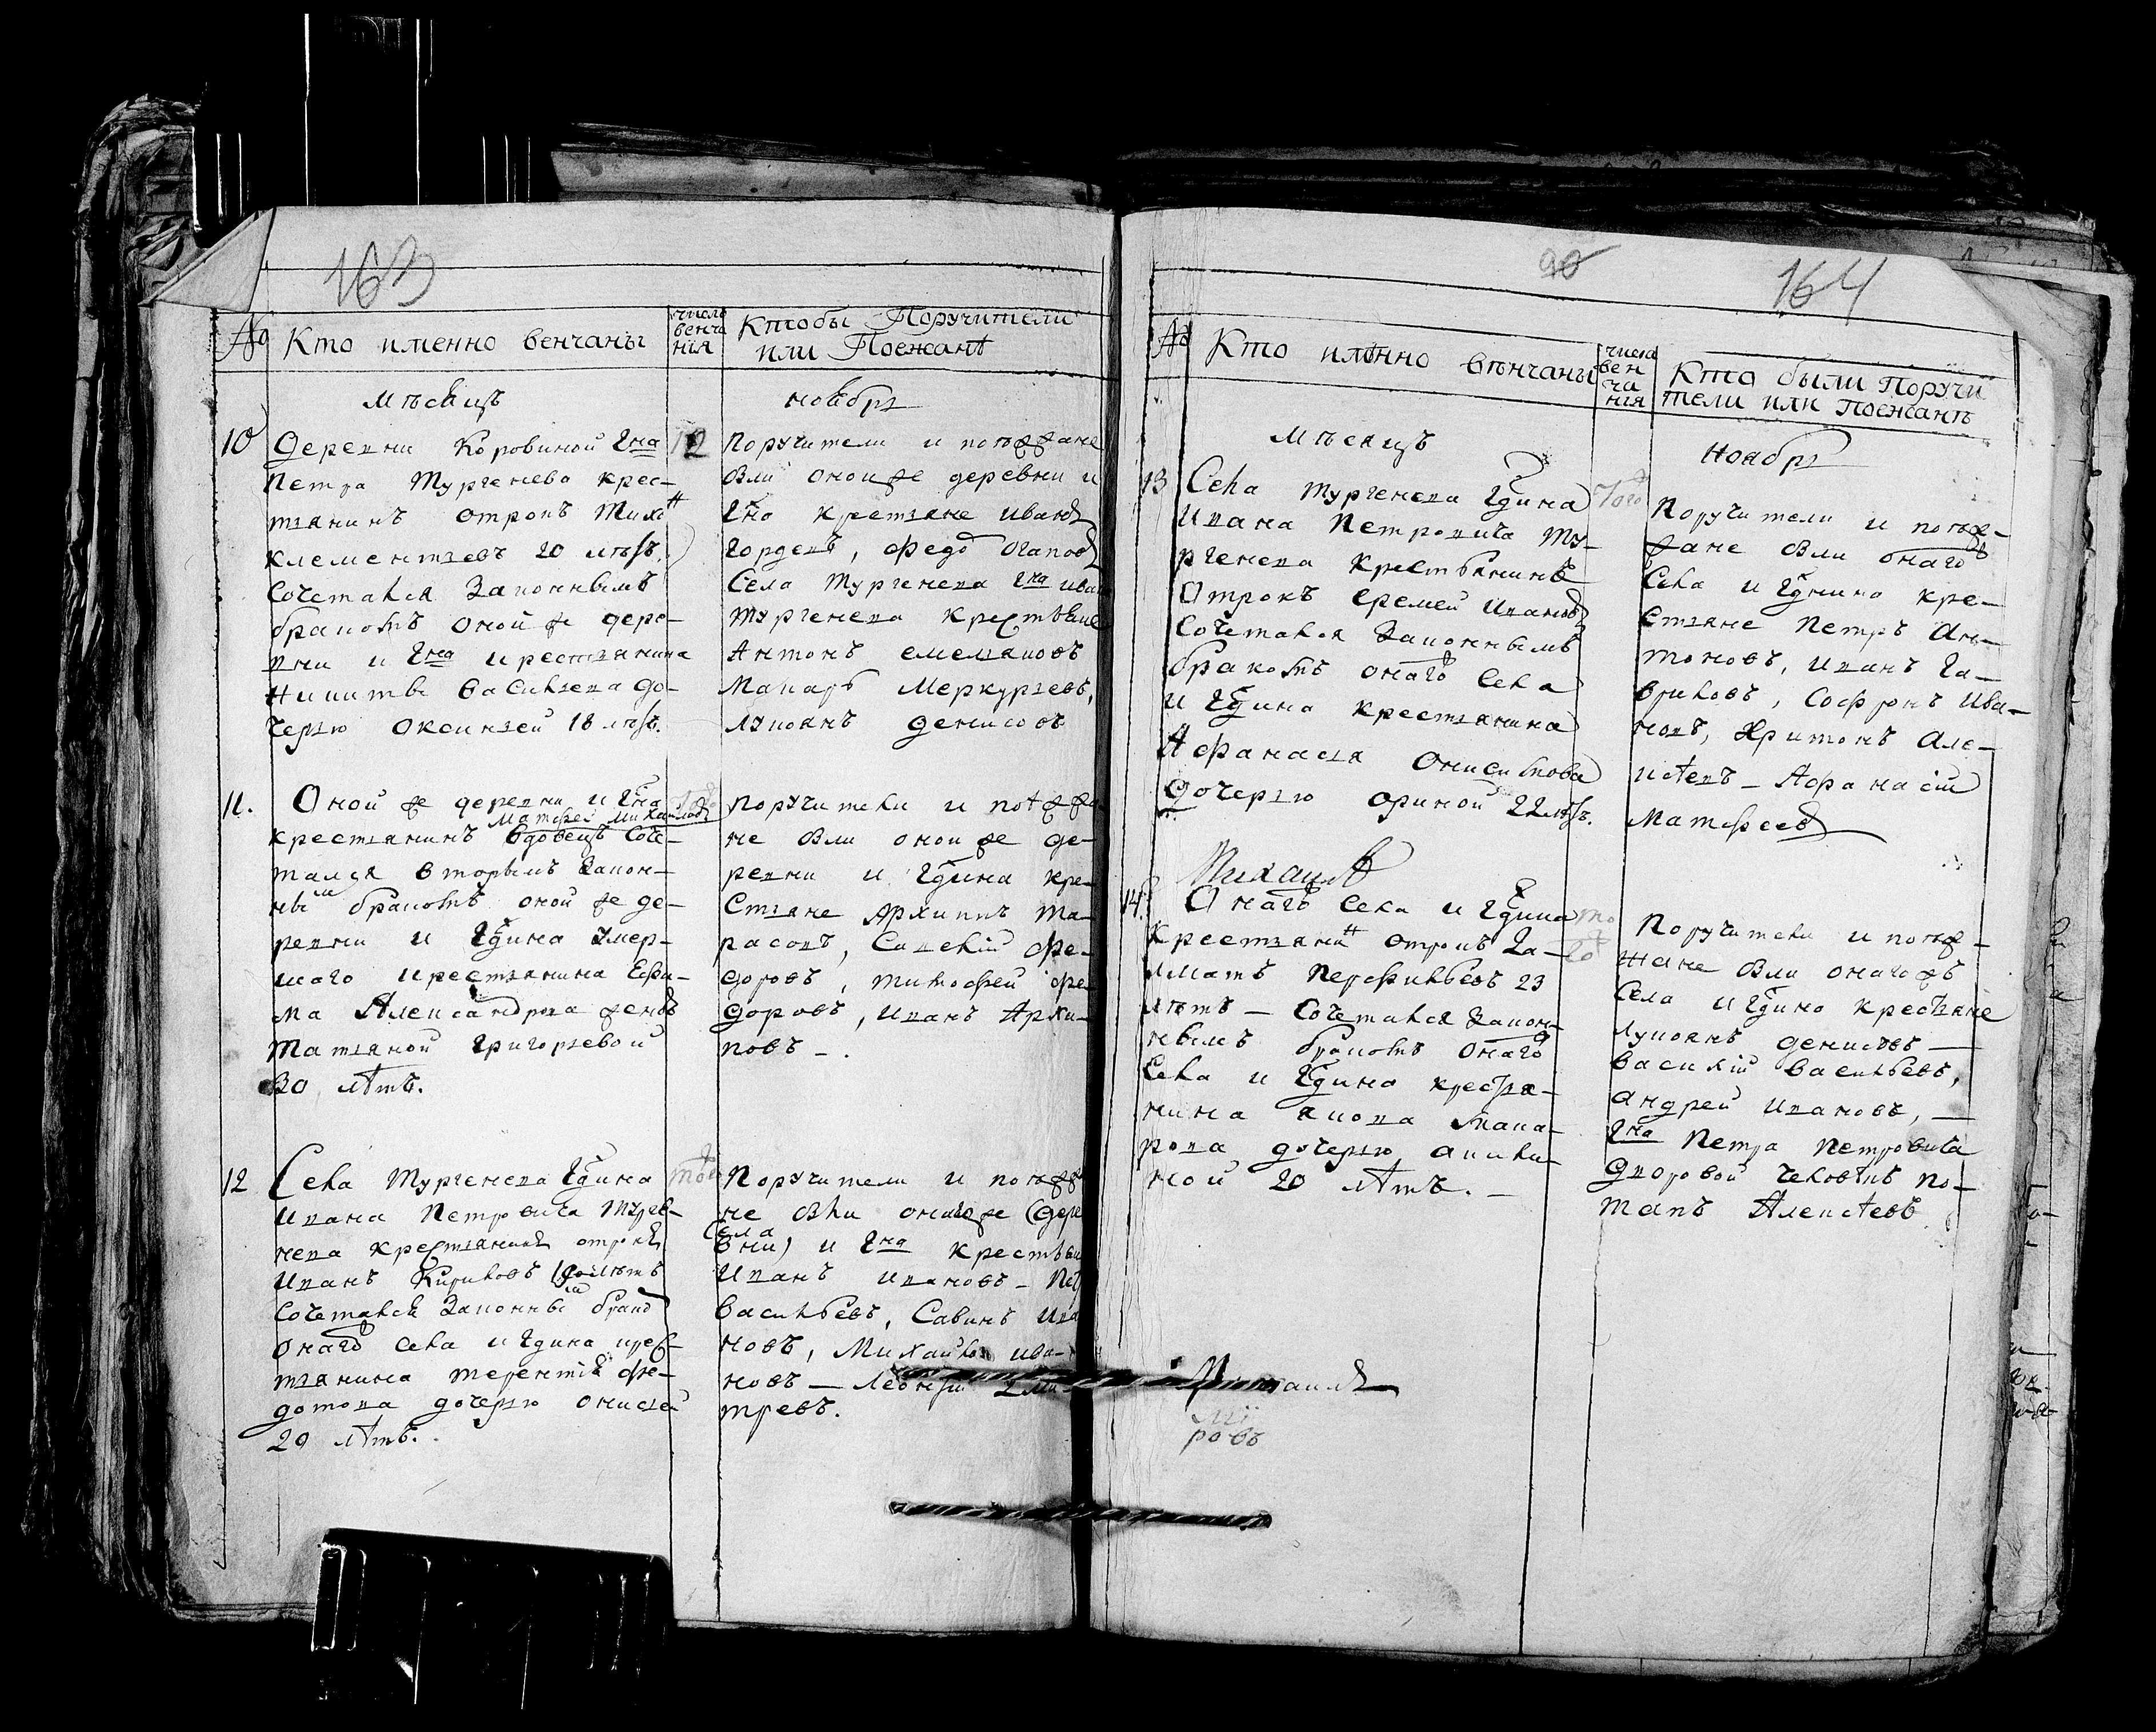 163
№
Кто именно венчаны
число
венча
нія
Кто бы Поручители
или Поезжанѣ
Мѣсяцъ
ноября
10
деревни Коровиной Гна
Петра Тургенева крес-
тьянинъ отрокъ Тихо н
клементьевъ 20 лѣтъ
Сочетался Законнымъ
бракомъ оной же дере-
вни и Гна крестьянина
Никиты Васильева до-
черью Оксиньей 18 лѣтъ.
12
поручители и поѣзжане
были оной же деревни и
Гно крестьяне Иванъ
Гордеевъ, федо Агаповъ
Села Тургенева Гна ива
Тургенева крестьяне
Антонъ емельяновъ
Макаръ Меркурьевъ,
лукоянъ денисовъ
11.
Оной же деревни и Гна
Матфей Михайловъ
крестьянинъ вдовецъ Соче-
тался вторымъ Закон-
ны м бракомъ оной же де-
ревни и Гдина умер-
шаго крестьянина Ефи-
ма Александрова женою
Татьяной Григорьевой
30 лѣтъ.
того
поручители и поѣзжа
не были оной же де-
ревни и Гдина кре-
Стьяне Архиппъ та-
расовъ, Савелій Фе-
доровъ, тимофей фе-
доровъ, иванъ Архи-
повъ - .
12
Села Тургенева Гдина
Ивана Петровича Турге-
нева крестьянинъ отрокъ
Иванъ Кириловъ лѣтъ
Сочетался Законны м брако
онаго Села и Гдина крес-
тьянина терентія фе-
дотова дочерью онисьей
20 лѣтъ.
того
Поручители и поѣзжа
не были онаго же (дере
Села
вни) и Гна крестьян
Иванъ ивановъ - Пет
Васильевъ, Савинъ Ива
новъ, Михайло ива-
новъ — Леонтій дми-
тревъ.
90
164
№
Кто имѣнно вѣнчаны
числа
вен
ча
нія
Кто были Поручи
тели или Поезжанѣ
Мѣсяцъ
Ноября
13
Села Тургенева Гдина
Ивана Петровича Ту-
ргенева Крестьянинъ
Отрокъ Еремей Ивановъ
Сочетался Законнымъ
бракомъ онаго Села
и Гдина крестьянина
Афанасья Онисимова
дочерью ориной 22 лѣтъ.
Того
Поручители и поѣз-
жане были онаго жъ
Села и Гдино кре-
стьяне Петръ Ан-
тоновъ, иванъ Га-
вриловъ, Софронъ Ива-
новъ, Харитонъ Але-
ксѣевъ - Афанасій
Матфеевъ
Михаилъ
14.
Онаго Села и Гдина
Крестьяни н отрокъ Га-
лактионъ Перфильевъ 23
лѣтъ - Сочетался Закон-
нымъ бракомъ онаго
Села и Гдина крестья-
нина якова Мака-
рова дочерью акили-
ной 20 лѣтъ. -
то
го
Поручители и поѣз-
жане были онаго жъ
Села и Гдино крестьяне
лукоянъ денисовъ -
Василій Васильевъ,
андрей ивановъ, -
Гна Петра Петровича
дворовой человѣкъ по-
тапъ Алексѣевъ
Михаилъ
мі
ровъ